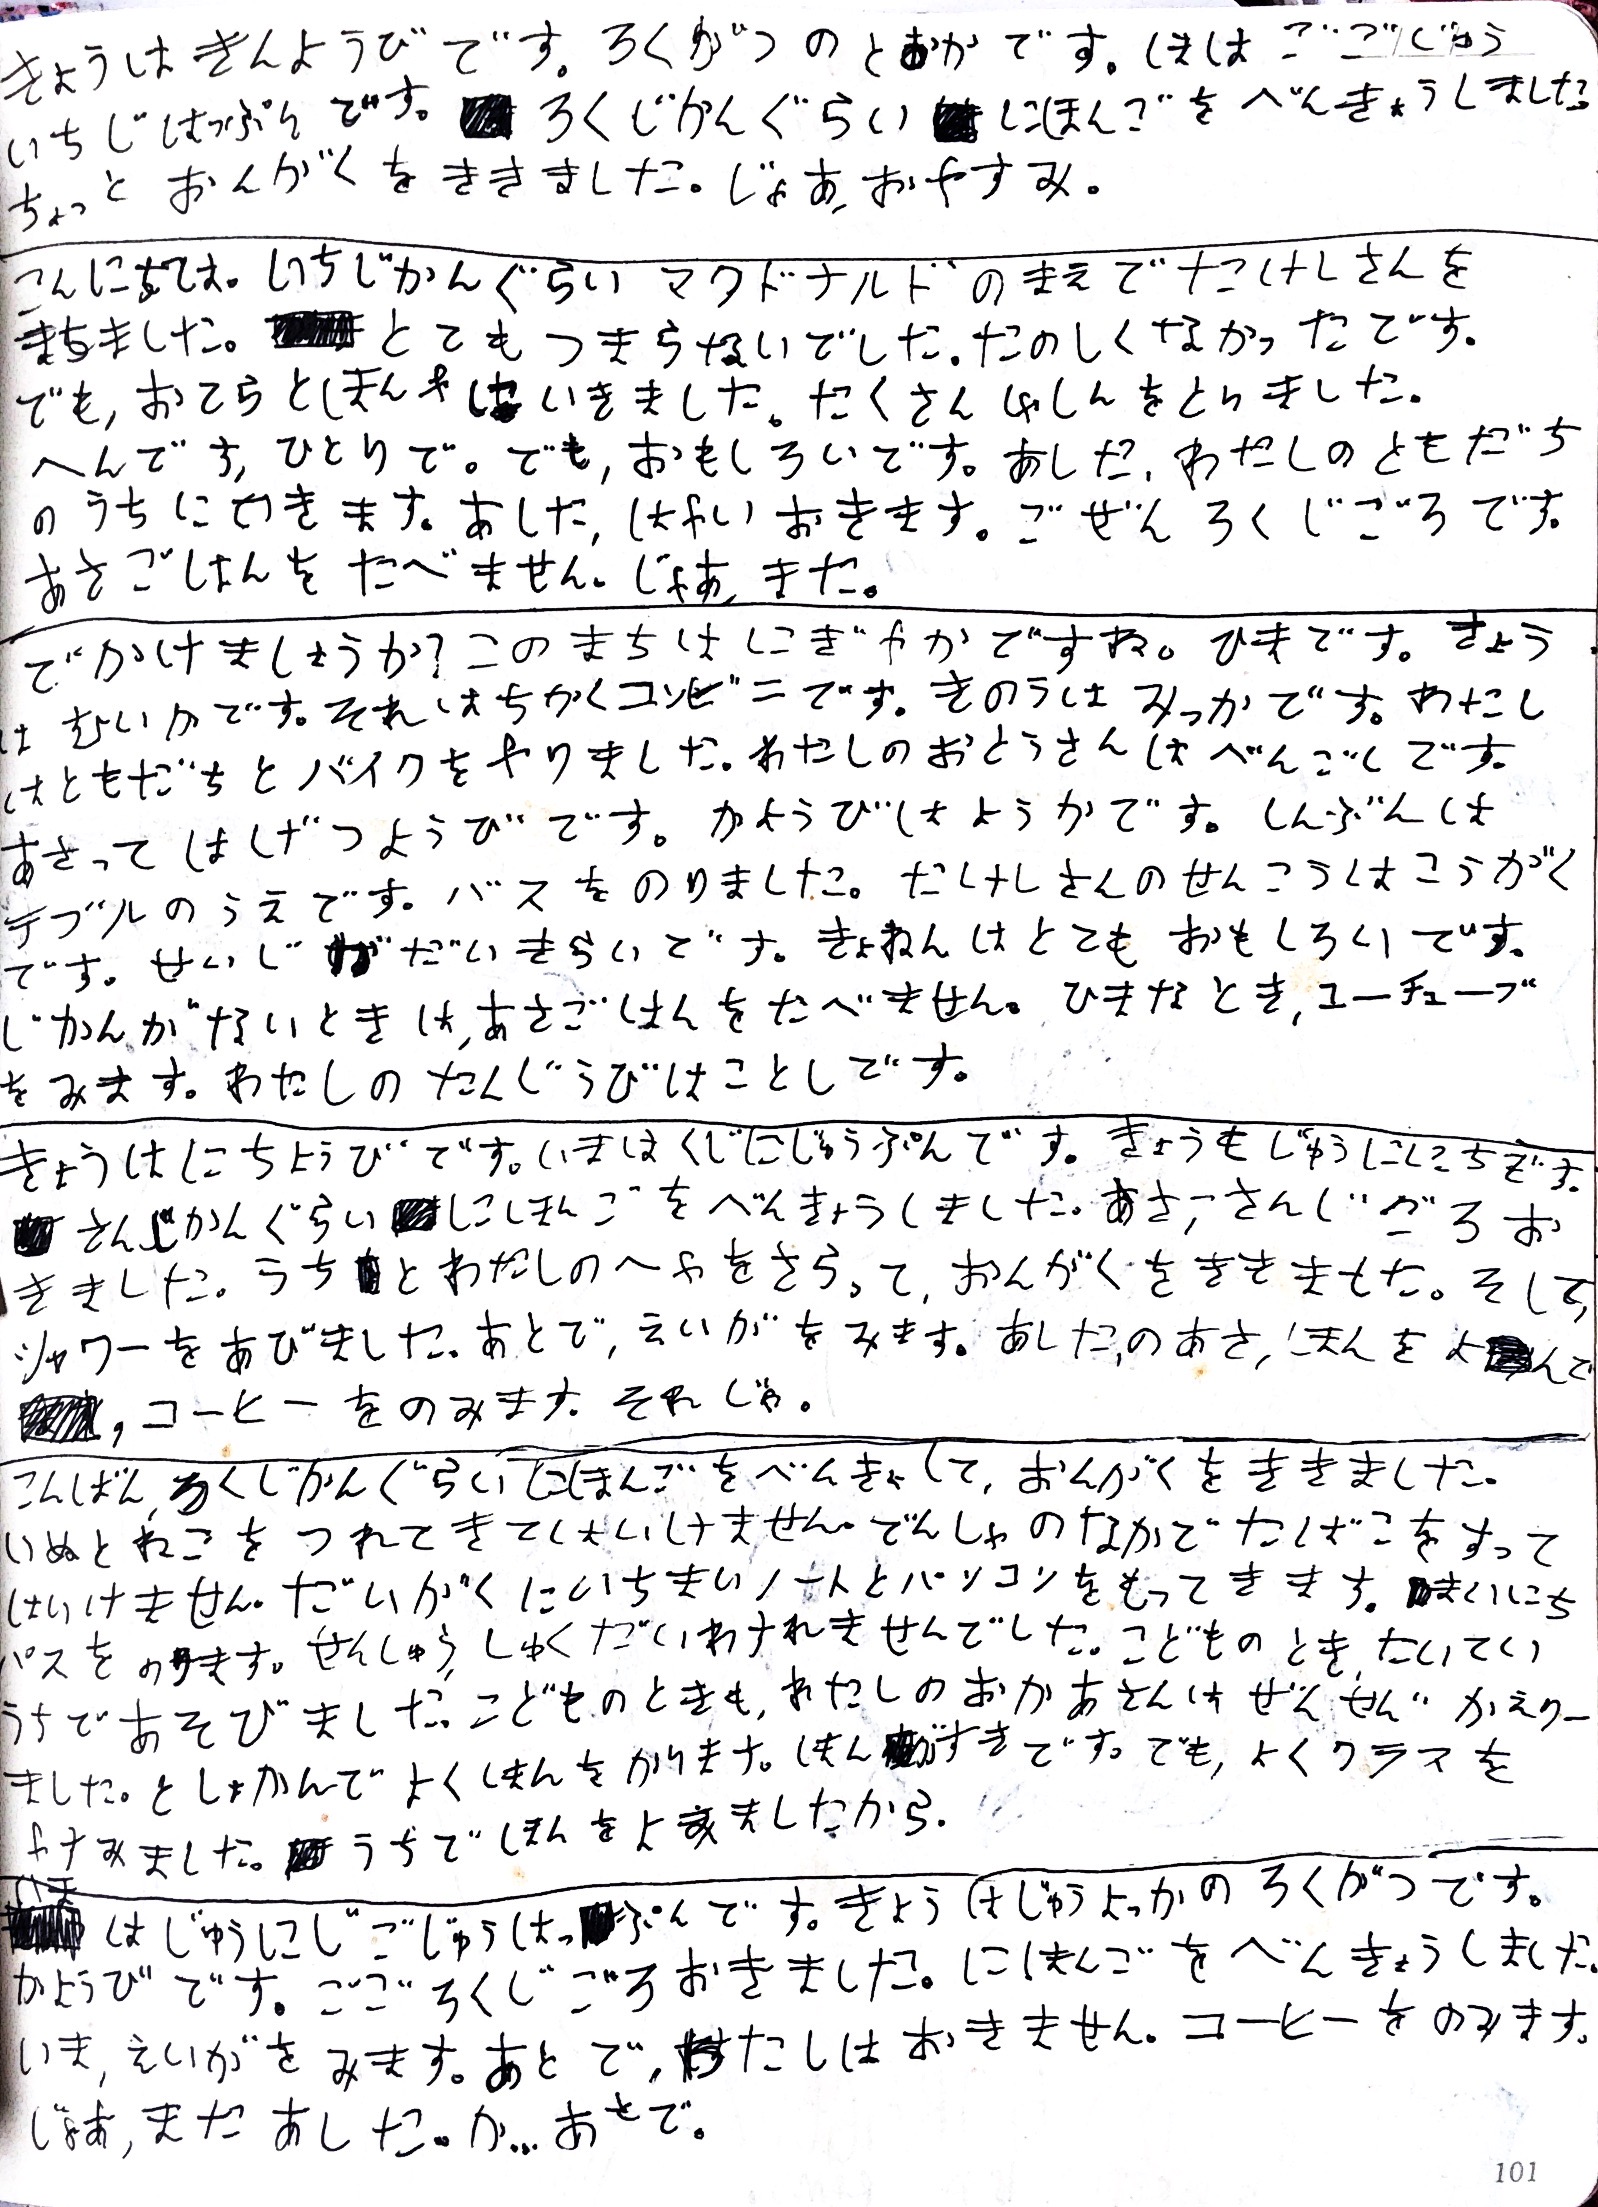 きょうはきんようびです。ろくがつのとおかです。いまはごごじゅう
いちじはっぷんです。ろくじかんぐらいにほんごをべんきょうしました。
ちょっとおんがくをききました。じゃあ,おやすみ。
こんにちは。いちじかんぐらいマクドナルドのまえでたけしさんを
まちました。とてもつまらないでした。たのしくなかったです。
でも,おてらとほんやはいきました。たくさんしゃしんをとりました。
へんです,ひとりで。でも,おもしろいです。あした,わたしのともだち
のうちにいきます。あした,はやいおきます。ごぜんろくじごろです。
あさごはんをたべません。じゃあ,また。
でかけましょうか?このまちはにぎやかですね。ひまです。きょう
はむいかです。それはちかくコンビニです。きのうはみっかです。わたし
はともだちとバイクをやりました。わたしのおとうさんはべんごしです。
あさってはげつようびです。かようびはようかです。しんぶんは
テブルのうえです。バスをのりました。たけしさんのせんこうはこうがく
です。せいじがだいきらいです。きょねんはとてもおもしろいです。
じかんがないときは,あさごはんをたべません。ひまなとき,ユーチューブ
をみます。わたしのたんじうびはことしです。
きょうはにちようびです。いまはくじにじゅうぷんです。きょうもじゅうににちです。
さんじかんぐらいにほんごをべんきょうしました。あさ,さんじごろお
きました。うちとわたしのへやをさらって,おんがくをききまもた。そして,
シャワーをあびました。あとで,えいがをみます。あした,のあさ,ほんをよんで
,コーヒーをのみます。それじゃ。
こんばん,ろくじかんぐらいにほんごをべんきょして,おんがくをききました。
いぬとねこをつれてきてはいけません。でんしゃのなかでたばこをすって
はいけません。だいがくにいちまいノートとパソコンをもってきます。まいにち
バスをのります。せんしゅう,しゅくだいわすれませんでした。こどものとき,たいてい
うちであそびました。こどものときも,わたしのおかあさんはぜんぜんかえりー
ました。としょかんでよくほんをかります。ほんがすきです。でも,よくクラスを
やすみました。うちでほんをよみましたから。
いま
はじゅうにじごじゅうはっぷんです。きょうはじゅうよっかのろくがつです。
かようびです。ごごろくじごろおきました。にほんごをべんきょうしました。
いま,えいがをみます。あとで,わたしはおきません。コーヒーをのみます。
じゃあ,またあした。か…あとで。
101